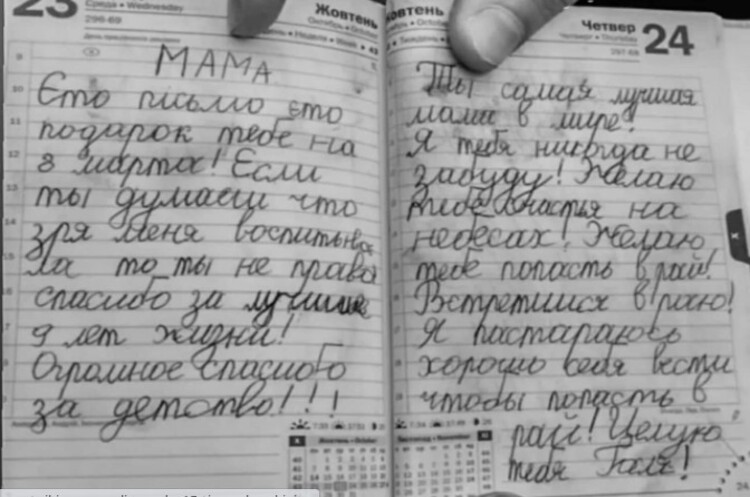 23
Среда • Wednesday
296-69
Жовтень
Октябрь • October
МАМА
Єто письмо єто
подарок тебе на
8 марта! Если
ты думаеш что
зря меня воспитыва
ла то ты не права
спасибо за лучшие
9 лет жизни!
Огромное спасибо
за детство!!!
Жовтень • October
Четвер
Четверг • Thursday
297-68
24
Ты самая лучшая
мама в мире!
Я тебя никогда не
забуду! Желаю
тебе счастья на
небесах! Желаю
тебе попасть в рай!
Встретимся в раю!
Я пастараюсь
хорошо себя вести
чтобы попасть в
рай! Целую
тебя Галя!